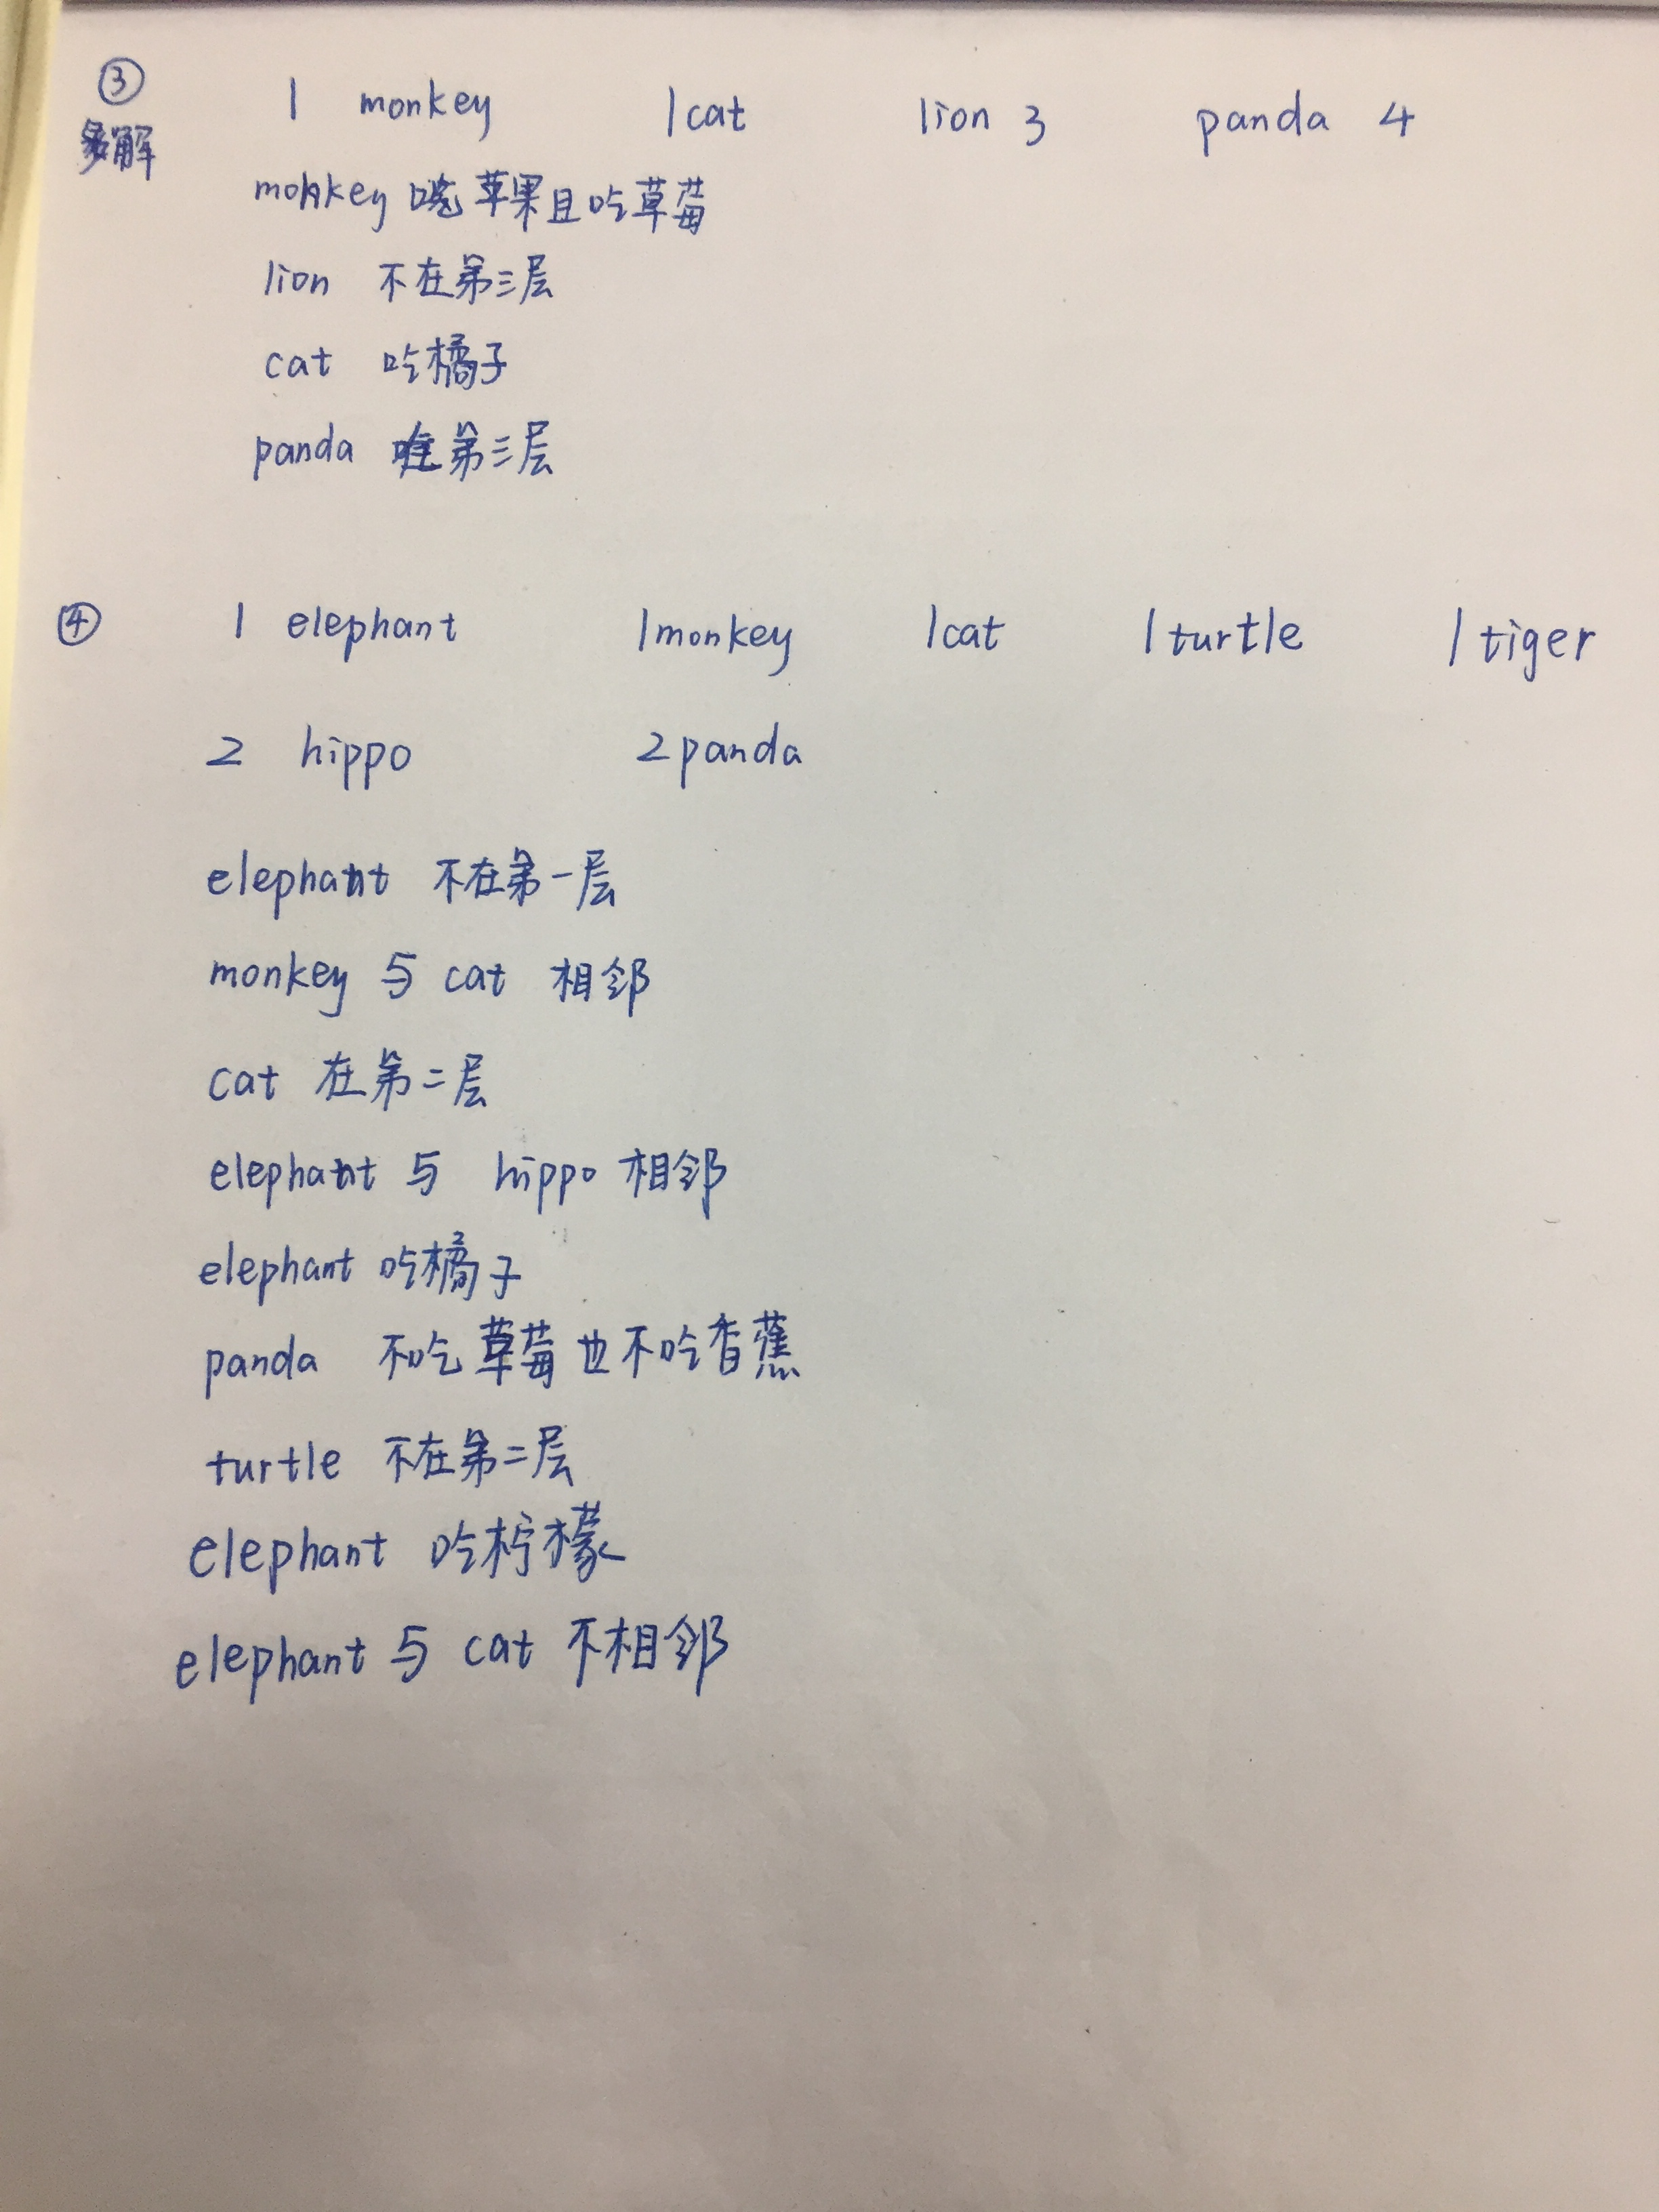 ③ 1 monkey 1 cat lion 3 panda 4
多解
monkey 吃苹果且吃草莓
lion 不在第三层
cat 吃橘子
panda 在第三层
④ 1 elephant 1 monkey 1 cat 1 turtle 1 tiger
2 hippo 2 panda
elephant 不在第一层
monkey 与 cat 相邻
cat 在第二层
elephant 与 hippo 相邻
elephant 吃橘子
panda 不吃草莓也不吃香蕉
turtle 不在第二层
elephant 吃柠檬
elephant 与 cat 不相邻